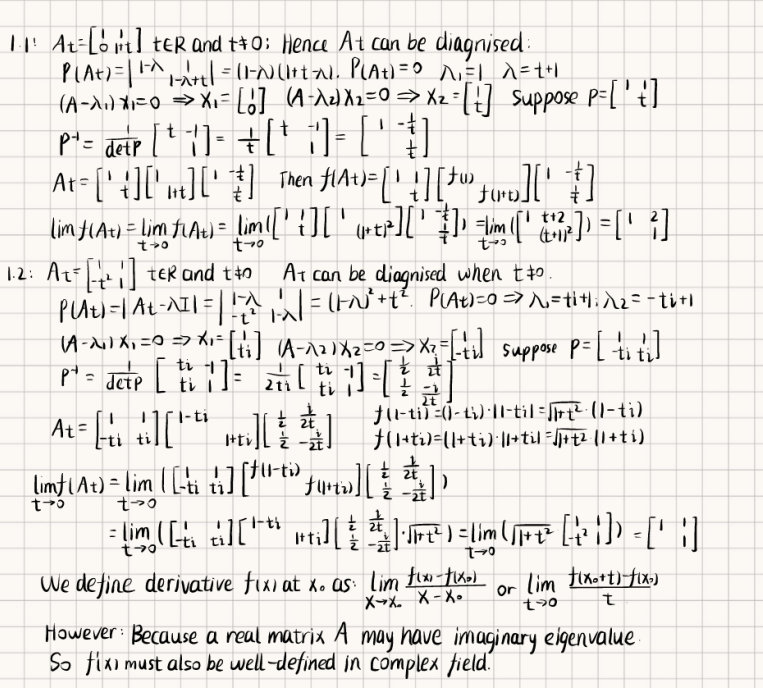 1.1: At=[1 1 0 1+t] t∈R and t≠0; Hence At can be diagnised:
P(At)=|1-λ 1 1-λ+t|=(1-λ)(1+t-λ). P(At)=0 λ₁=1 λ=t+1
(A-λ₁)x₁=0 ⇒X₁=[1 0] (A-λ₂)X₂=0⇒X₂=[1 t] suppose P=[1 1 t]
P⁻¹= 1/detP [t -1 1]= 1/t [t -1 1]=[1 -1/t 1/t]
At=[1 1 t][1 1+t][1 -1/t 1/t] Then f(At)=[1 1 t][f(1) f(1+t)][1 -1/t 1/t]
limf(At)=lim t→0 f(At)=lim t→0([1 1 t][1 (1+t)²][1 -1/t 1/t])=lim t→0([1 t+2 (t+1)²])=[1 2 1]
1.2: At=[1 1 -t² 1] t∈R and t≠0 At can be diagnised when t≠0.
P(At)=|At-λI|=|1-λ 1 -t² 1-λ|=(1-λ)²+t². P(At)=0⇒λ₁=ti+1. λ₂=-ti+1
(A-λ₁)X₁=0⇒X₁=[1 ti] (A-λ₂)X₂=0⇒X₂=[1 -ti] suppose P=[1 1 -ti ti]
P⁻¹= 1/detP [ti -1 ti 1]= 1/2ti [ti -1 ti 1]=[1/2 i/2t 1/2 -i/2t]
At=[1 1 -ti ti][1-ti 1+ti][1/2 i/2t 1/2 -i/2t] f(1-ti)=(1-ti)·|1-ti|=√1+t²·(1-ti)
f(1+ti)=(1+ti)·|1+ti|=√1+t²(1+ti)
limf(At)=lim t→0 t→0 ([1 1 -ti ti][f(1-ti) f(1+ti)][1/2 i/2t 1/2 -i/2t])
=lim t→0([1 1 -ti ti][1-ti 1+ti][1/2 i/2t 1/2 -i/2t]·√1+t²)=lim t→0(√1+t² [1 1 -t² 1])=[1 1 1]
We define derivative f(x) at x₀ as: lim x→x₀ f(x)-f(x₀)/x-x₀ or lim t→0 f(x₀+t)-f(x₀)/t
However: Because a real matrix A may have imaginary eigenvalue.
So f(x) must also be well-defined in complex field.